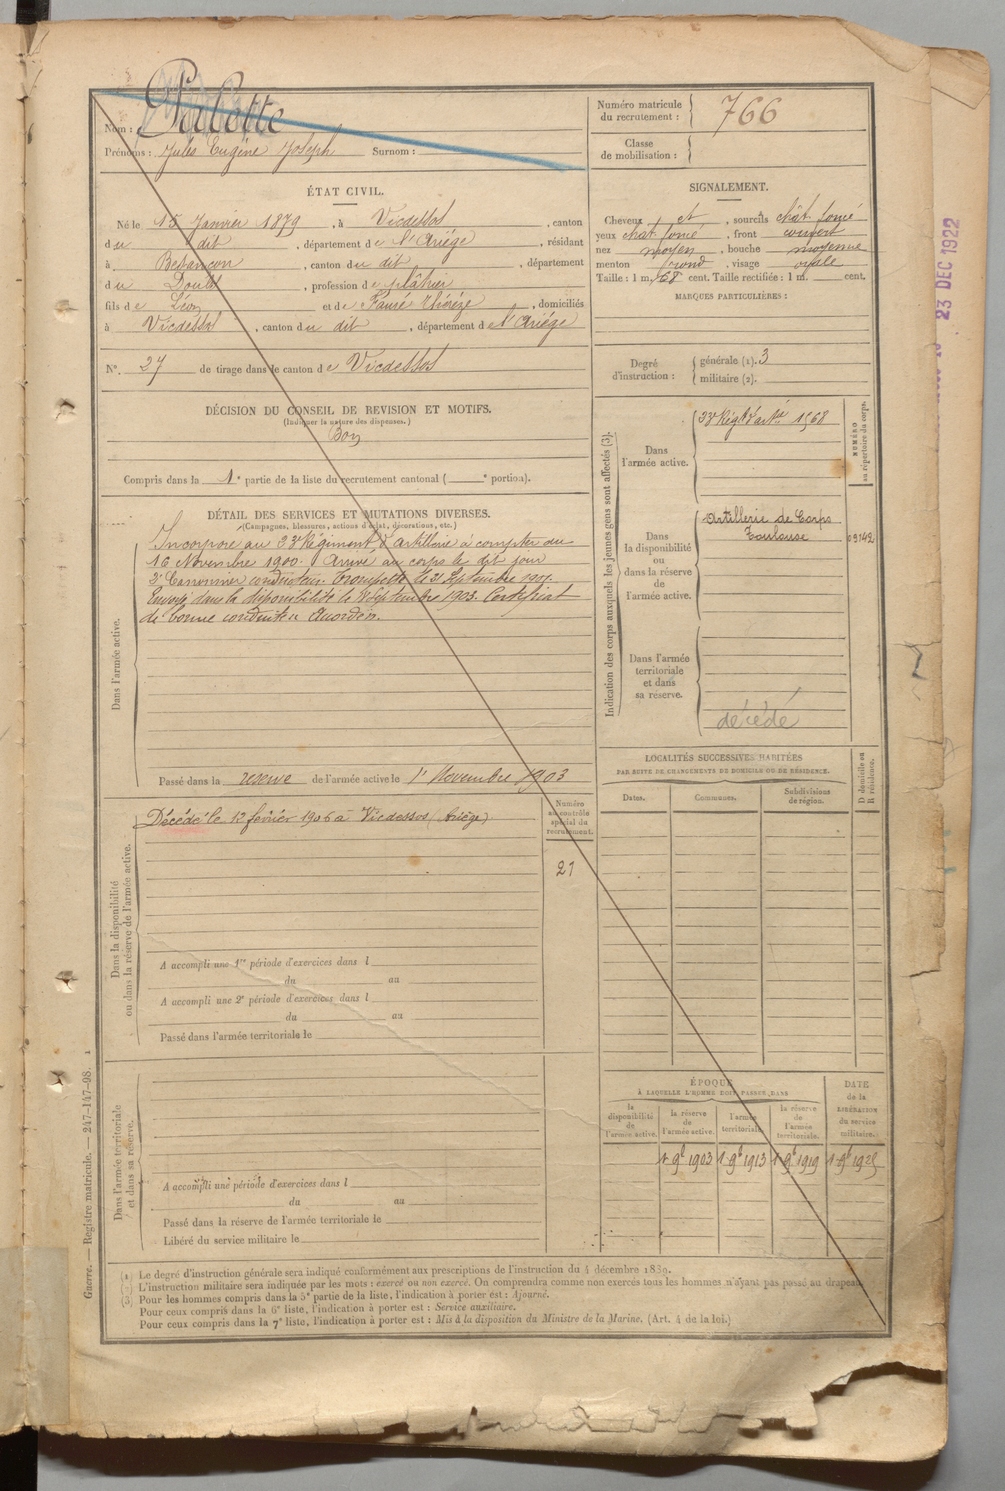 Nom : Pubette
Prénoms : Jules Eugène Joseph Surnom :
Numéro matricule du recrutement : 766
Classe de mobilisation :
ÉTAT CIVIL.
Né le 15 Janvier 1879, à Vicdessos, canton
du dit, département de l'Ariége, résidant
à Besançon, canton du dit, département
du Doubs, profession de plâtrier
fils de Léon et de Fauré Thérèze, domiciliés
à Vicdessos, canton du dit, département de l'Ariége
N°. 27 de tirage dans le canton de Vicdessos
SIGNALEMENT.
Cheveux et, sourcils chât foncé
yeux chat foncé, front couvert
nez moyen, bouche moyenne
menton rond, visage ovale
Taille : 1 m. 68 cent. Taille rectifiée : 1 m. cent.
MARQUES PARTICULIÈRES :
Degré d'instruction :
générale (1). 3
militaire (2).
DÉCISION DU CONSEIL DE REVISION ET MOTIFS.
(Indiquer la nature des dispenses.)
Bon
Compris dans la 1e partie de la liste du recrutement cantonal ( e portion).
DÉTAIL DES SERVICES ET MUTATIONS DIVERSES.
(Campagnes, blessures, actions d'éclat, décorations, etc.)
Dans l'armée active.
Incorporé au 23e Régiment d'artillerie à compter du
16 Novembre 1900. Arrivé au corps le dit jour
2e Canonnier conducteur. Trompette le 21 Septembre 1901.
Envoyé dans la disponibilité le Septembre 1903. Certificat
de bonne conduite Accordé.
Passé dans la réserve de l'armée active le 1er Novembre 1903
Indication des corps auxquels les jeunes gens sont affectés (3).
NUMÉRO au répertoire du corps.
Dans l'armée active.
23e Régt d'artie 1568
Dans la disponibilité ou dans la réserve de l'armée active.
Artillerie de Corps
Toulouse
09142
Dans l'armée territoriale et dans sa réserve.
décédé
LOCALITÉS SUCCESSIVES HABITÉES
PAR SUITE DE CHANGEMENTS DE DOMICILE OU DE RÉSIDENCE.
D domicile ou R résidence.
Dates. Communes. Subdivisions de région.
Dans la disponibilité ou dans la réserve de l'armée active.
Numéro au contrôle spécial du recrutement.
21
Décédé le 12 février 1906 à Vicdessos (Ariège)
A accompli une 1re période d'exercices dans l
du au
A accompli une 2e période d'exercices dans l
du au
Passé dans l'armée territoriale le
Dans l'armée territoriale et dans sa réserve.
A accompli une période d'exercices dans l
du au
Passé dans la réserve de l'armée territoriale le
Libéré du service militaire le
ÉPOQUE
À LAQUELLE L'HOMME DOIT PASSER DANS
la disponibilité de l'armée active.
la réserve de l'armée active.
l'armée territoriale.
la réserve de l'armée territoriale.
DATE de la LIBÉRATION du service militaire.
1 9b 1903 1 9b 1913 1 9b 1919 1 9b 1925
(1) Le degré d'instruction générale sera indiqué conformément aux prescriptions de l'instruction du 4 décembre 1889.
(2) L'instruction militaire sera indiquée par les mots : exercé ou non exercé. On comprendra comme non exercés tous les hommes n'ayant pas passé au drapeau.
(3) Pour les hommes compris dans la 5e partie de la liste, l'indication à porter est : Ajourné.
Pour ceux compris dans la 6e liste, l'indication à porter est : Service auxiliaire.
Pour ceux compris dans la 7e liste, l'indication à porter est : Mis à la disposition du Ministre de la Marine. (Art. 4 de la loi.)
Guerre. — Registre matricule. — 247-147-98.
23 DEC 1922